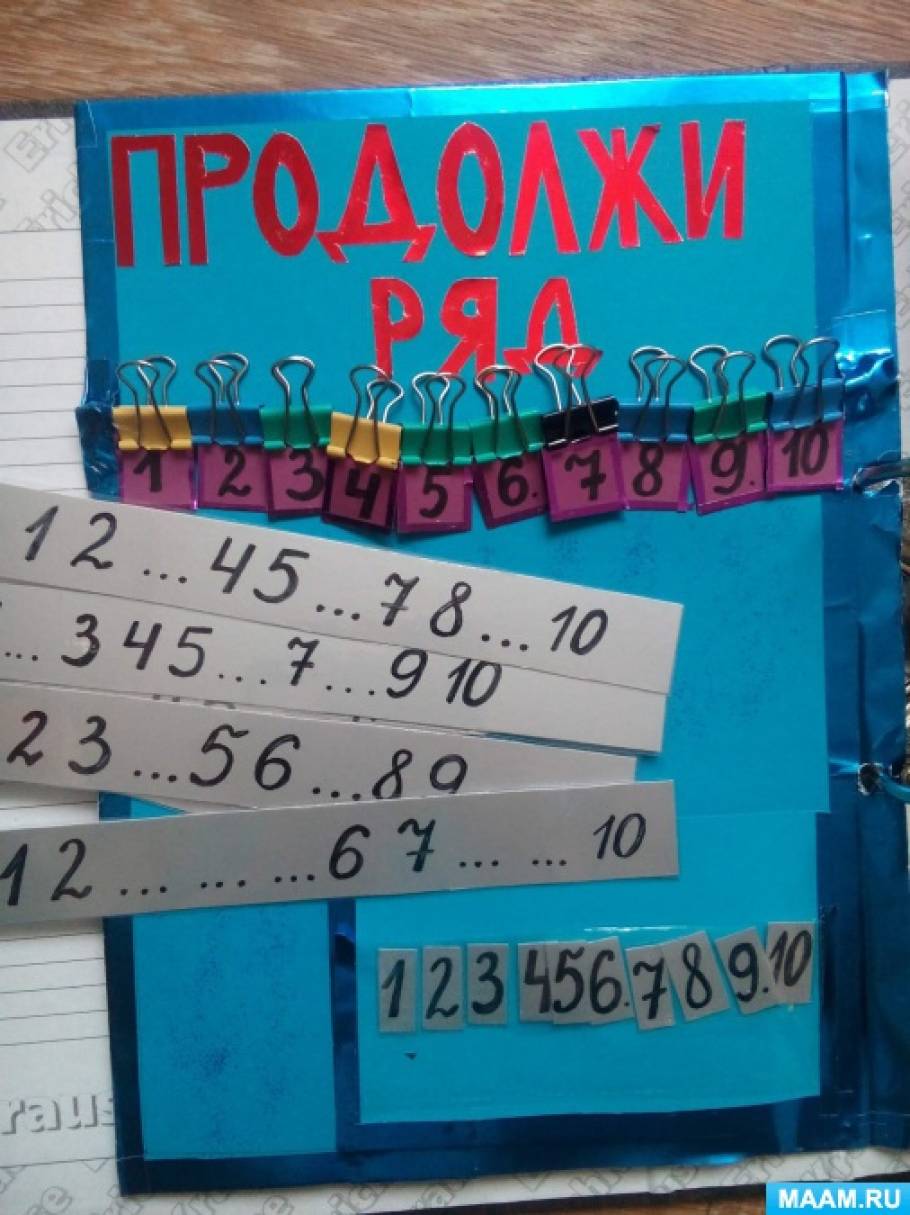 ПРОДОЛЖИ
РЯД
1 2 3 4 5 6. 7 8 9. 10
1 2 ... 4 5 ... 7 8 ... 10
... 3 4 5 ... 7 ... 9 10
2 3 ... 5 6 ... 8 9
1 2 ... ... ... 6 7 ... ... 10
1 2 3 4 5 6. 7 8 9. 10
MAAM.RU